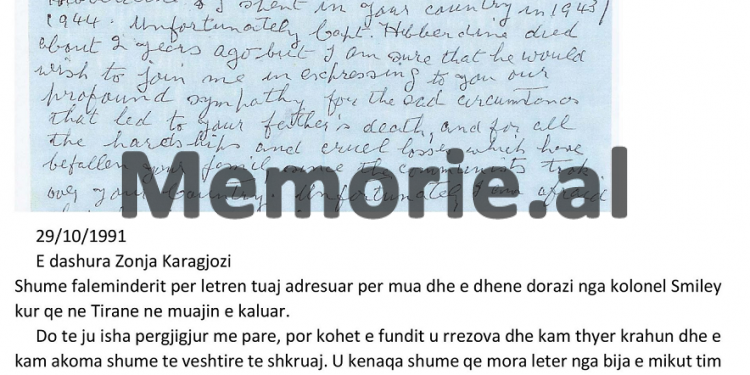 & I spent in your country in 1943/
1944. Unfortunately Capt. Hibberdine died
about 2 years ago but I am sure that he would
wish to join me in expressing to you our
profound sympathy for the sad circumstances
that led to your father's death, and for all
the hardships and cruel losses which have
befallen your family since the communists took
over your country. Unfortunately I am afraid
Memorie.al
29/10/1991
E dashura Zonja Karagjozi
Shume faleminderit per letren tuaj adresuar per mua dhe e dhene dorazi nga kolonel Smiley
kur qe ne Tirane ne muajin e kaluar.
Do te ju isha pergjigjur me pare, por kohet e fundit u rrezova dhe kam thyer krahun dhe e
kam akoma shume te veshtire te shkruaj. U kenaqa shume qe mora leter nga bija e mikut tim